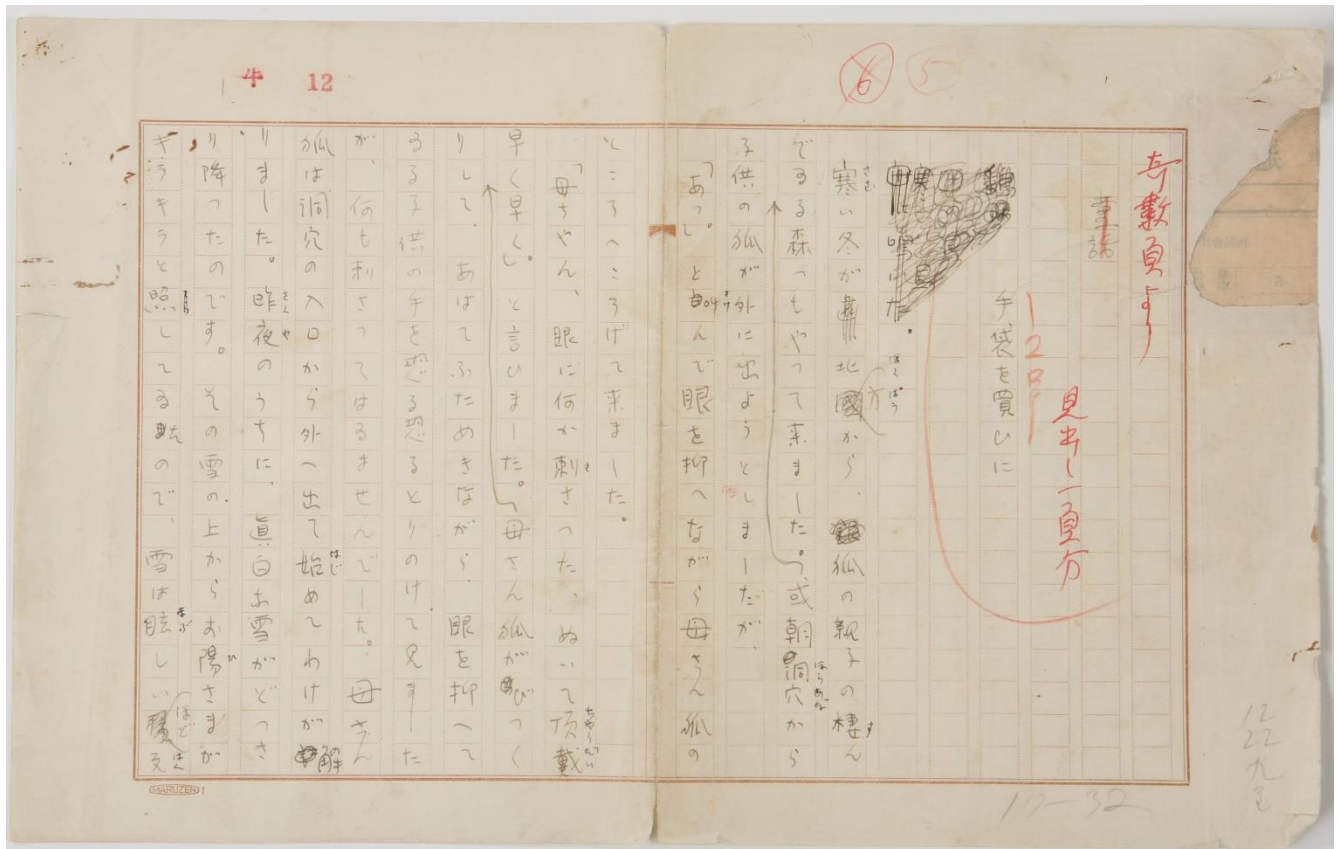 牛 12
6 5
奇數頁より
童話
12P
見出し一頁分
手袋を買ひに
寒い冬が北方から、狐の親子の棲ん
さむ
ほくぱう
す
でゐる森へもやつて来ました。或朝洞穴から
ほらあな
子供の狐が外に出ようとしましたが、
「あつ。」と叫んで眼を抑へながら母さん狐の
さけ
ところへころげて来ました。
「母ちやん、眼に何か刺さつた、ぬいて頂戴
さ
ちやうだい
早く早く。」と言ひました。母さん狐がびつく
りして、あはてふためきながら、眼を抑へて
ゐる子供の手を恐る恐るとりのけて見ました
が、何も刺さつてはゐませんでした。母さん
狐は洞穴の入口から外へ出て始めてわけが解
はじ
りました。昨夜のうちに、眞白な雪がどつさ
さくや
り降つたのです。その雪の上からお陽さまが
ひ
キラキラと照してゐたので、雪は眩しいほど反
まぶ
はん
MARUZEN
17-32
12
22